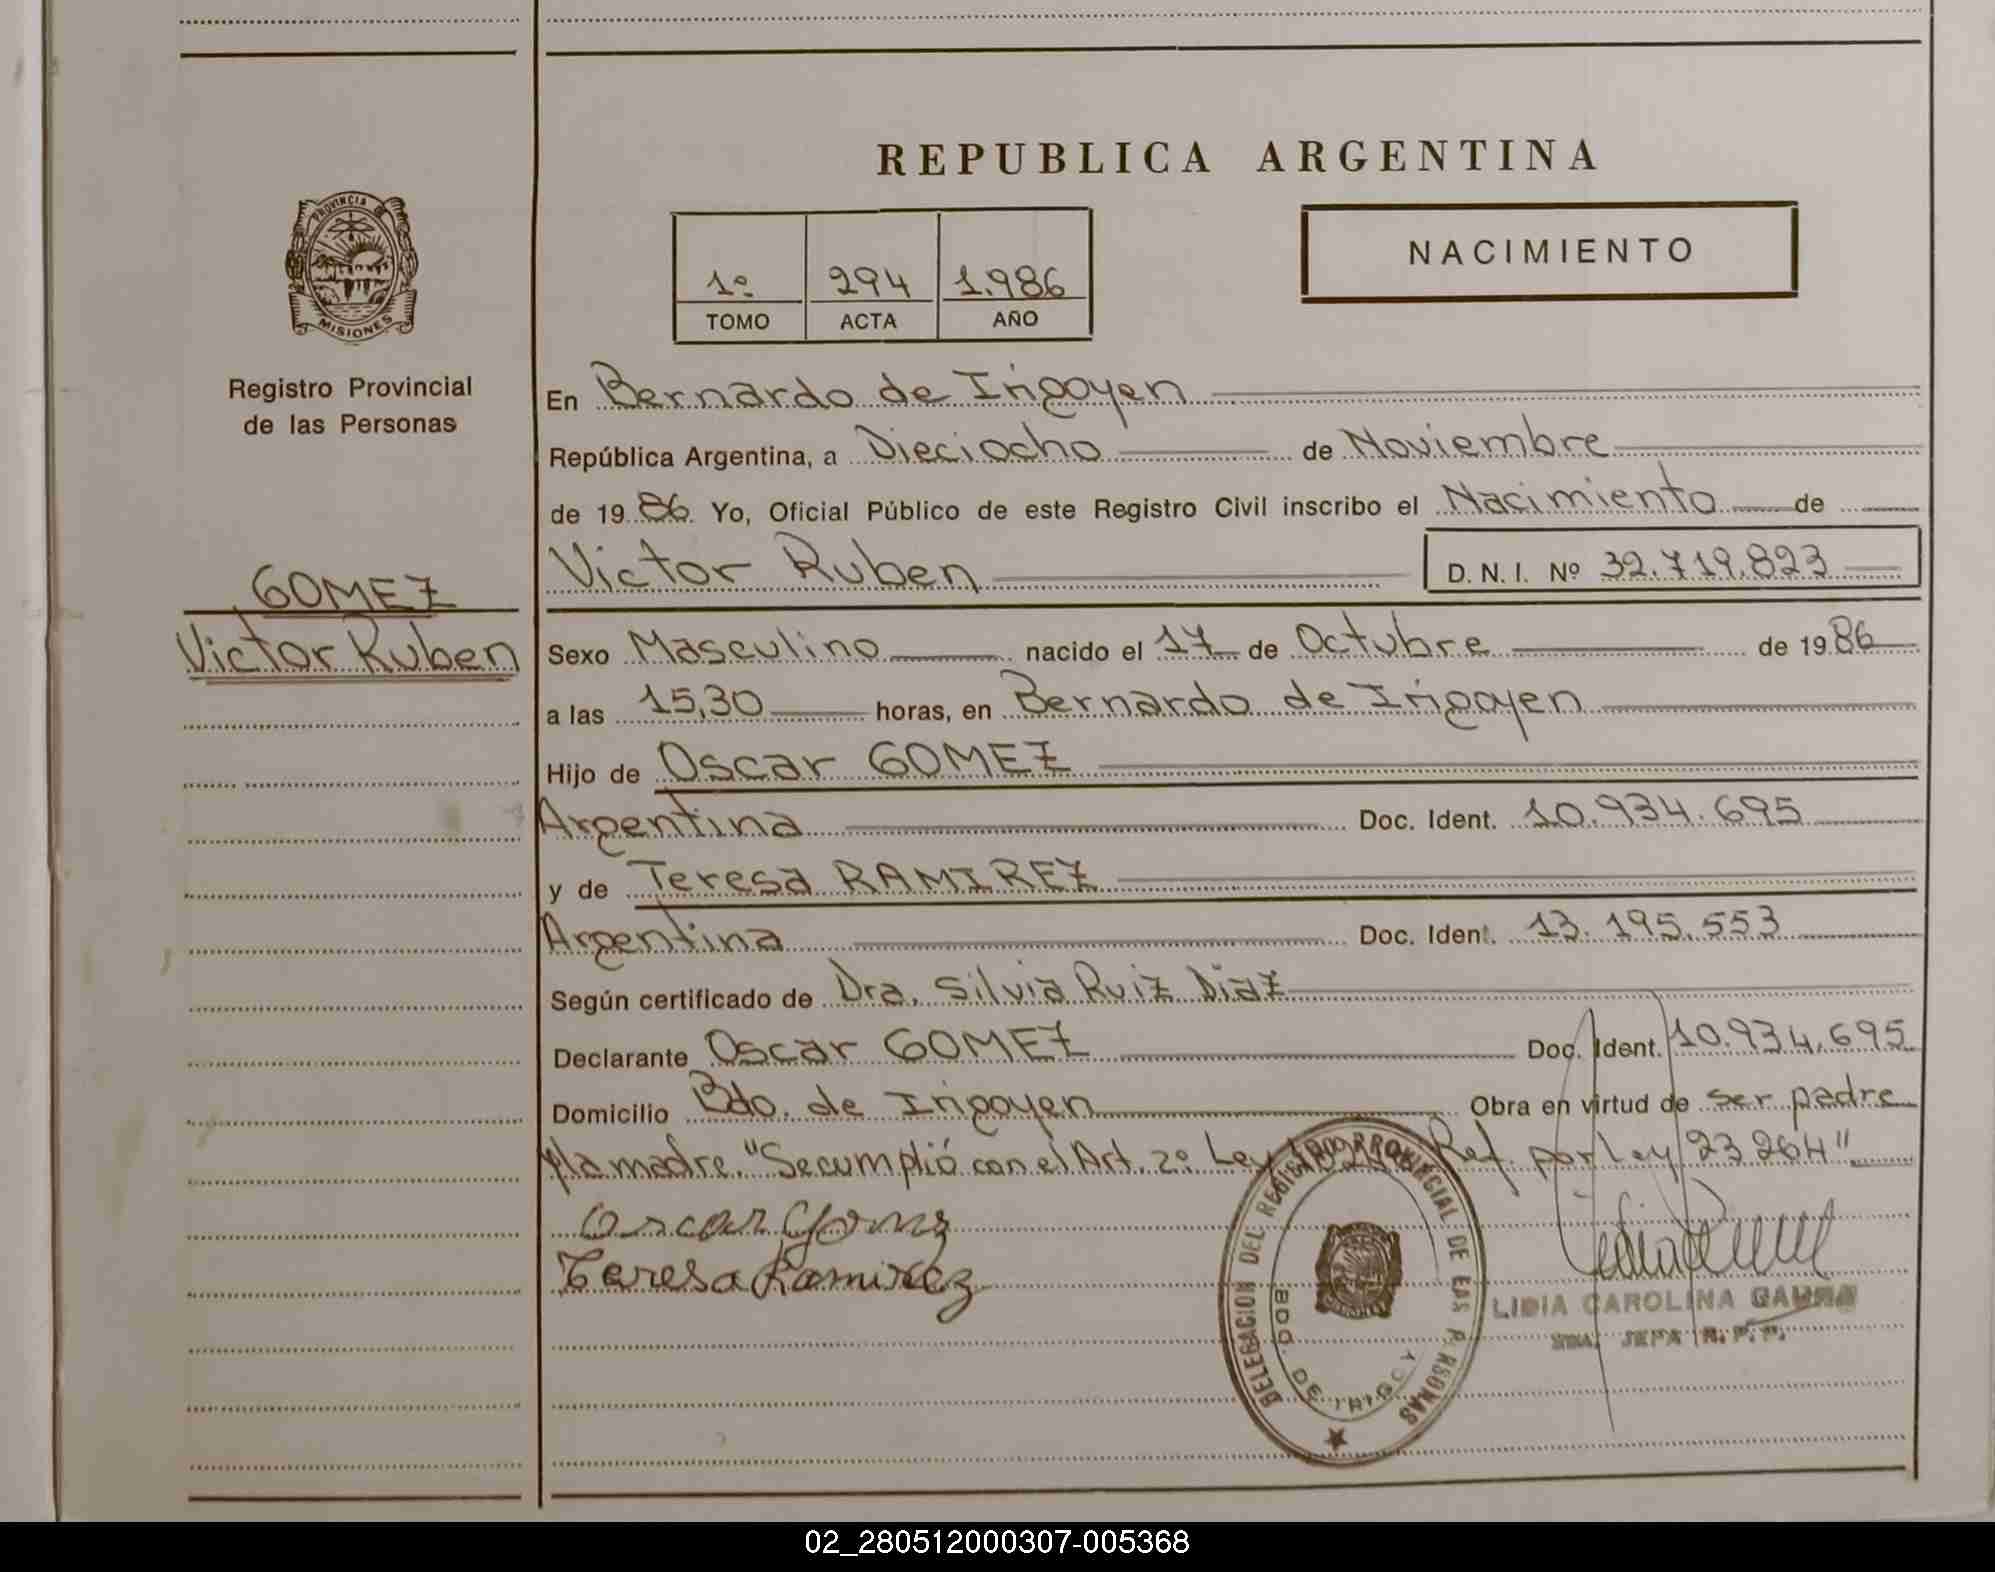 REPUBLICA ARGENTINA
PROVINCIA DE
MISIONES
Registro Provincial
de las Personas
1º 294 1.986
TOMO ACTA AÑO
NACIMIENTO
En Bernardo de Irigoyen
República Argentina, a Dieciocho de Noviembre
de 1986 Yo, Oficial Público de este Registro Civil inscribo el Nacimiento de
Victor Ruben D.N.I. Nº 32.719.823
GOMEZ
Victor Ruben
Sexo Masculino nacido el 17 de Octubre de 1986
a las 15,30 horas, en Bernardo de Irigoyen
Hijo de Oscar GOMEZ
Argentina Doc. Ident. 10.934.695
y de Teresa RAMIREZ
Argentina Doc. Ident. 13.195.553
Según certificado de Dra. Silvia Ruiz Diaz
Declarante Oscar GOMEZ Doc. Ident. 10.934.695
Domicilio Bdo. de Irigoyen Obra en virtud de ser padre
y la madre. "Se cumplió con el Art. 2º Ley Ref. por Ley 23264"
Oscar Gomez
Teresa Ramirez
DELEGACION DEL REGISTRO PROVINCIAL DE LAS PERSONAS
BDO. DE IRIGOY
LIDIA CAROLINA
JEFA R.P.P.
02_280512000307-005368